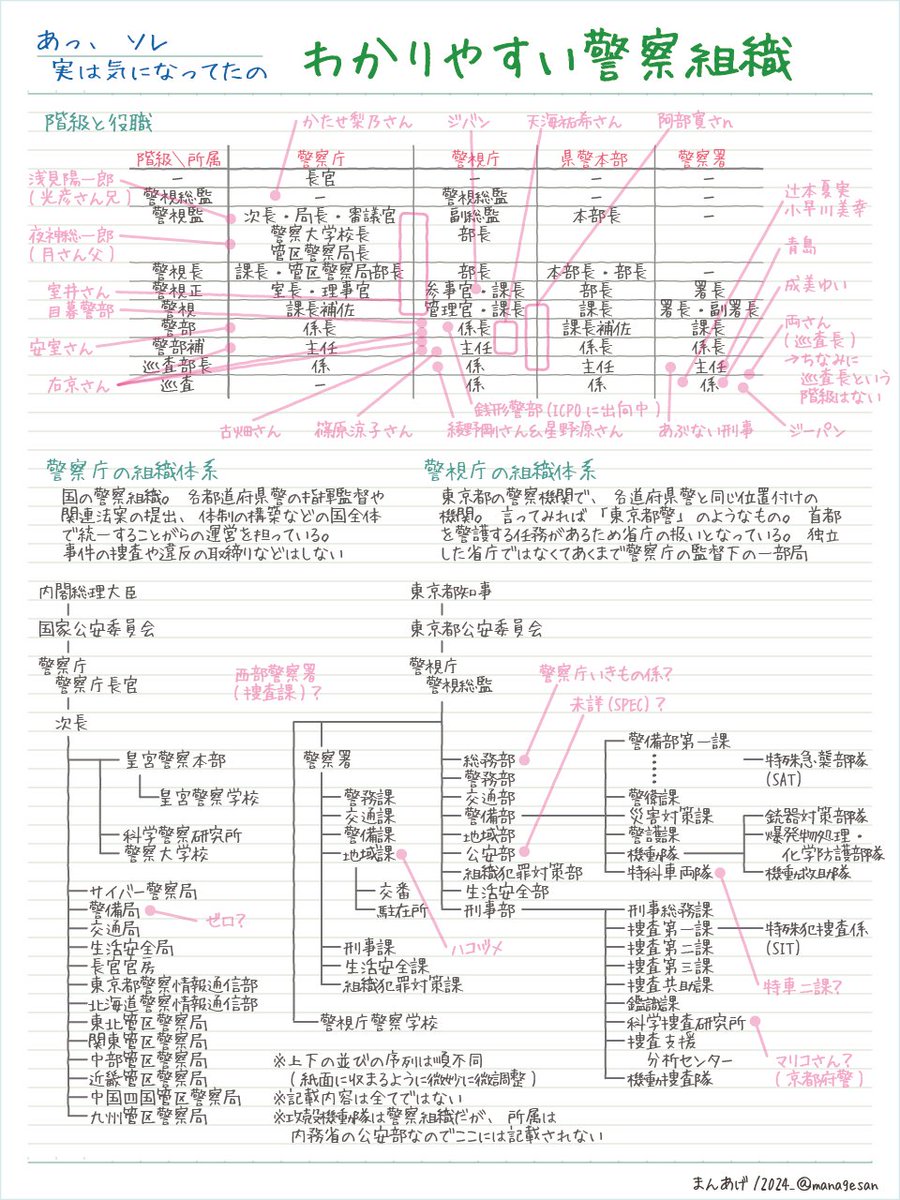 あっ、ソレ
実は気になってたの
わかりやすい警察組織
階級と役職
かたせ梨乃さん
ジバン
天海祐希さん
阿部寛さn
階級\所属 警察庁 警視庁 県警本部 警察署
− 長官 − − −
警視総監 − 警視総監 − −
警視監 次長・局長・審議官 副総監 本部長 −
警察大学校長 部長
管区警察局長
警視長 課長・管区警察局部長 部長 本部長・部長 −
警視正 室長・理事官 参事官・課長 部長 署長
警視 課長補佐 管理官・課長 課長 署長・副署長
警部 係長 係長 課長補佐 課長
警部補 主任 主任 係長 係長
巡査部長 係 係 主任 主任
巡査 − 係 係 係
浅見陽一郎
(光彦さん兄)
夜神総一郎
(月さん父)
室井さん
目暮警部
安室さん
右京さん
辻本夏実
小早川美幸
青島
成美ゆい
両さん
(巡査長)
→ちなみに
巡査長という
階級はない
銭形警部(ICPOに出向中)
古畑さん
篠原涼子さん
綾野剛さん&星野源さん
あぶない刑事
ジーパン
警察庁の組織体系
国の警察組織。各都道府県警の指揮監督や
関連法案の提出、体制の構築などの国全体
で統一することがらの運営を担っている。
事件の捜査や違反の取締りなどはしない
警視庁の組織体系
東京都の警察機関で、各道府県警と同じ位置付けの
機関。言ってみれば「東京都警」のようなもの。首都
を警護する任務があるため省庁の扱いとなっている。独立
した省庁ではなくてあくまで警察庁の監督下の一部局
内閣総理大臣
国家公安委員会
警察庁
警察庁長官
次長
皇宮警察本部
皇宮警察学校
科学警察研究所
警察大学校
サイバー警察局
警備局
ゼロ?
交通局
生活安全局
長官官房
東京都警察情報通信部
北海道警察情報通信部
東北管区警察局
関東管区警察局
中部管区警察局
近畿管区警察局
中国四国管区警察局
九州管区警察局
東京都知事
東京都公安委員会
警視庁
警視総監
西部警察署
(捜査課)?
警察庁いきもの係?
未詳(SPEC)?
警察署
警務課
交通課
警備課
地域課
交番
駐在所
ハコヅメ
刑事課
生活安全課
組織犯罪対策課
警視庁警察学校
総務部
警務部
交通部
警備部
地域部
公安部
組織犯罪対策部
生活安全部
刑事部
警備部第一課
特殊急襲部隊
(SAT)
警備課
災害対策課
警護課
機動隊
特科車両隊
銃器対策部隊
爆発物処理・
化学防護部隊
機動救助隊
特車二課?
刑事総務課
捜査第一課
特殊犯捜査係
(SIT)
捜査第二課
捜査第三課
捜査共助課
鑑識課
科学捜査研究所
マリコさん?
(京都府警)
捜査支援
分析センター
機動捜査隊
※上下の並びの序列は順不同
(紙面に収まるように微妙に微調整)
※記載内容は全てではない
※攻殻機動隊は警察組織だが、所属は
内務省の公安部なのでここには記載されない
まんあげ/2024_@managesan